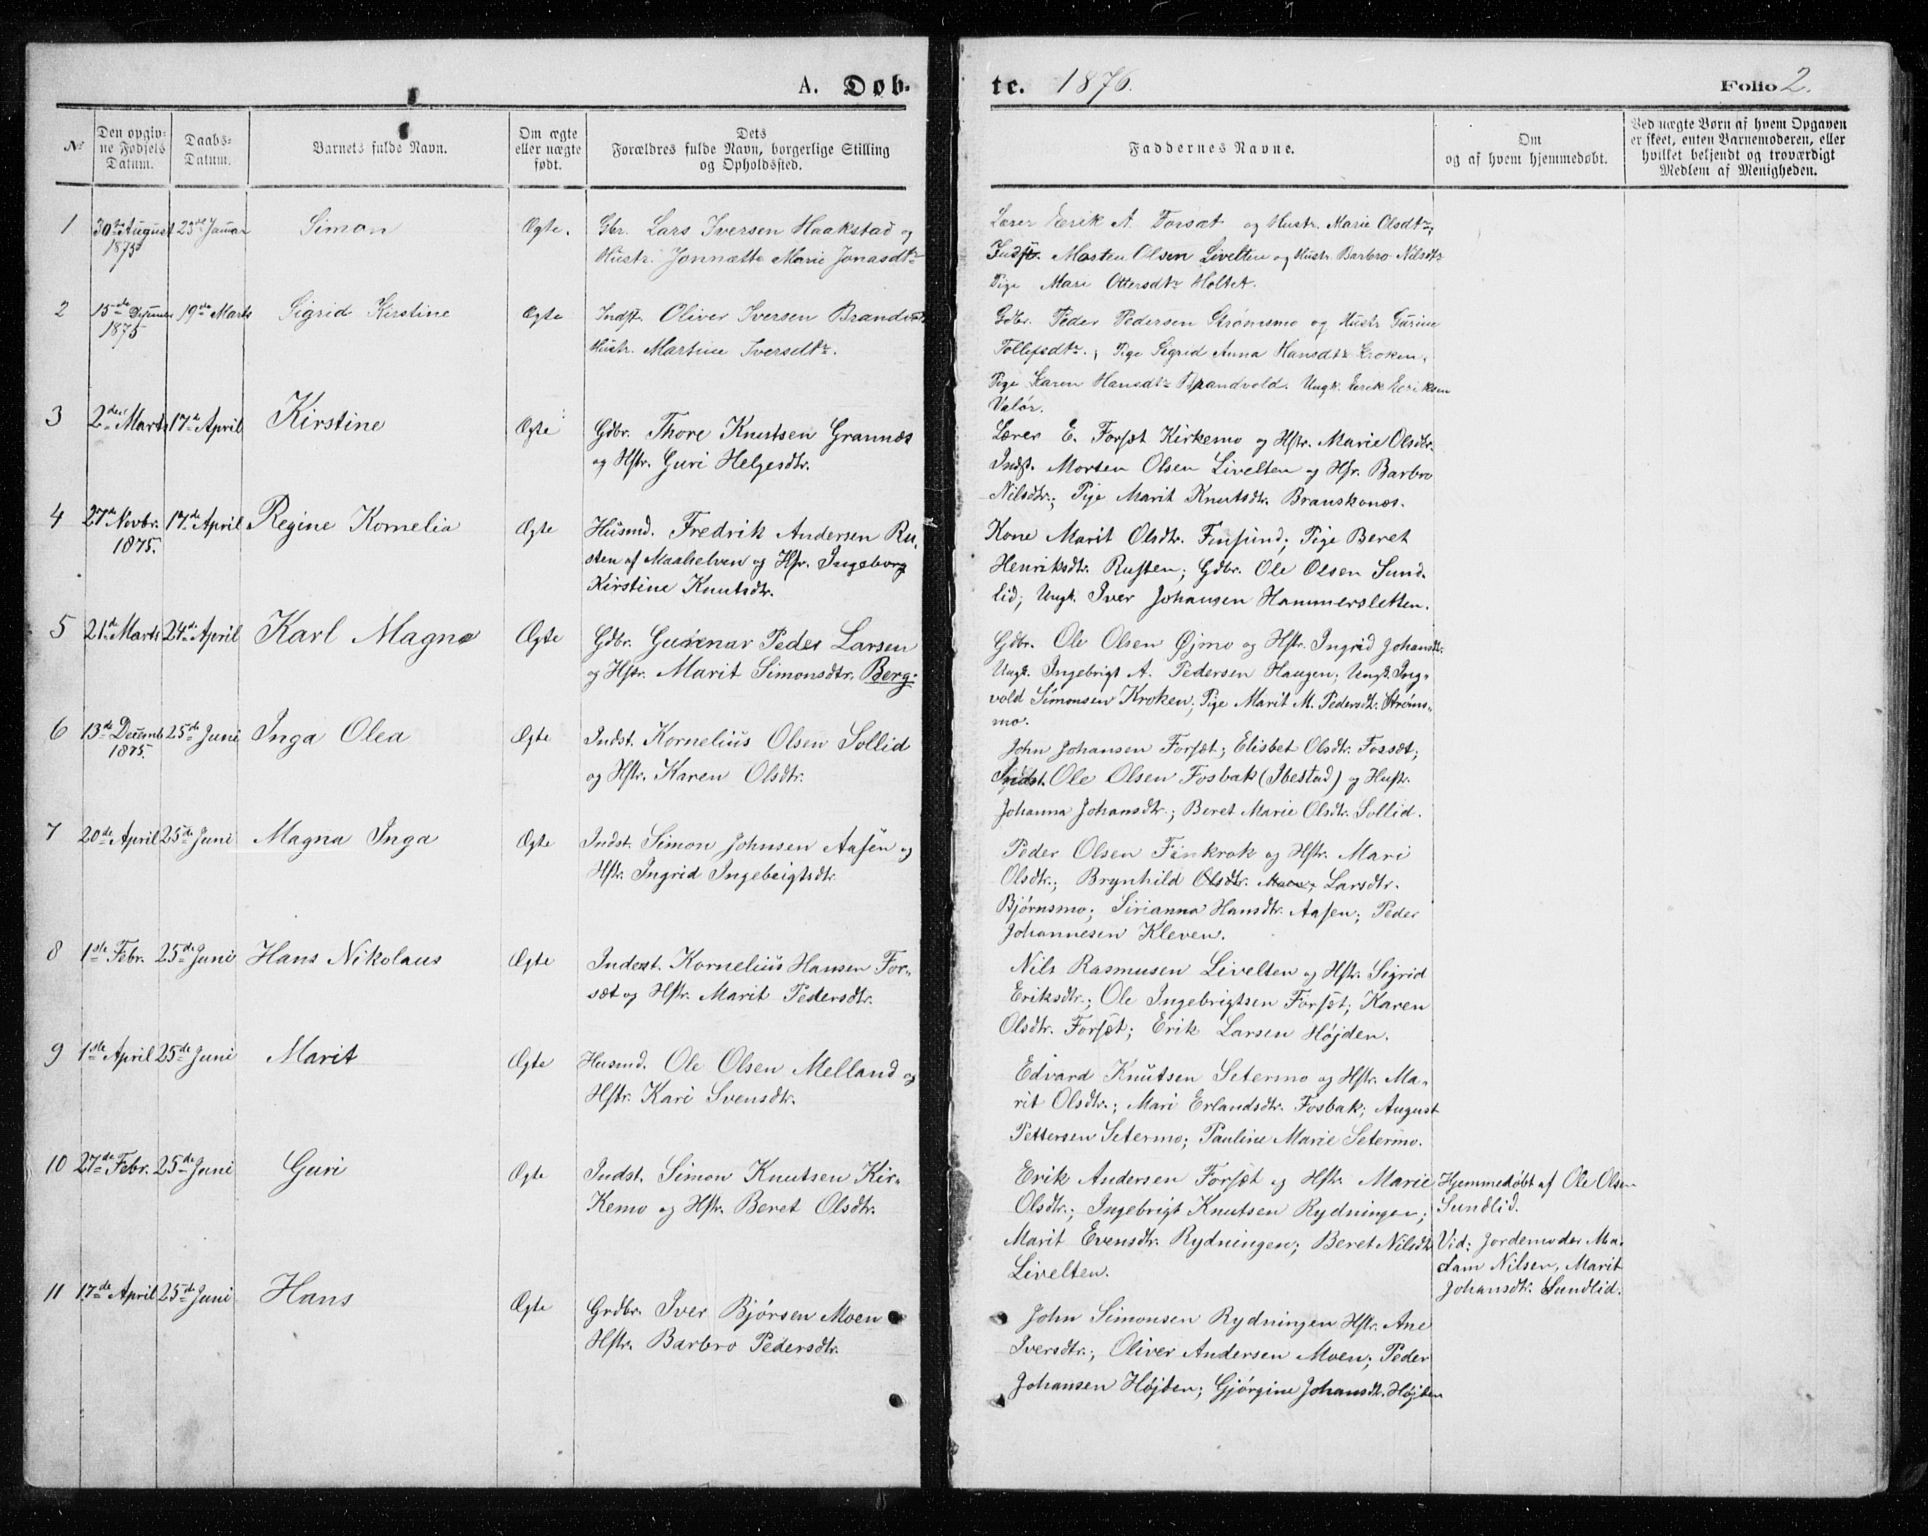 A. Døb-
te. 1876.
Folio 2.
No
Den opgiv-
ne Fødsels
Datum.
Daabs-
Datum.
Barnets fulde Navn.
Om ægte
eller uægte
født.
Dets
Forældres fulde Navn, borgerlige Stilling
og Opholdssted.
Faddernes Navne.
Om
og af hvem hjemmedøbt.
Ved uægte Børn af hvem Opgaven
er skeet, enten Barnemoderen, eller
hvilket beljendt og troværdigt
Medlem af Menigheden.
1
30te August
1875
23de Januar
Simon
Ægte.
Gbr. Lars Iversen Haakstad og
Hustr. Jonnætta Marie Jonasdtr
Lærer Eerik A. Forsæt og Hustr. Marie Olsdtr,
Indst. Morten Olsen Livelten og Hustr Barbro Nilsdtr
Pige Mari Ottersdtr Holtet.
2
15de Desember
1875.
19de Marts
Sigrid Kirstine
Ægte
Indst. Oliver Iversen Brandvold
Hustr. Martine Iversdtr.
Gdbr. Peder Pedersen Strømsmo og Hustr Gurine
Tollefsdtr., Pige Sigrid Anna Hansdtr Kroken,
Pige Karen Hansdtr Brandvold. Ungk. Eerik Eeriksen
Valør.
3
2de Marts
17de April
Kirstine
Ægte
Gdbr. Thore Knutsen Grannæs
og Hstr. Guri Helgesdtr.
Lærer E. Forsæt Kirkemo og Hstr. Marie Olsdtr.
Indst. Morten Olsen Livelten og Hstr. Barbro
Nilsdtr.; Pige Marit Knutsdtr. Branskonæs.
4
27de Novbr.
1875.
17de April
Regine Kornelia
Ægte
Husmd. Fredrik Andersen Ru-
sten af Maalselven og Hstr. Ingeborg
Kirstine Knutsdtr.
Kone Marit Olsdtr. Finsund; Pige Beret
Henriksdtr. Rusten; Gdbr. Ole Olsen Sund-
lid; Ungk. Iver Johansen Hammersletten.
5
21de Marts
24de April
Karl Magna
Ægte
Gdbr. Gunnar Peder Larsen
og Hstr. Marit Simonsdtr. Berg.
Gdbr. Ole Olsen Øjmo og Hstr. Ingrid Johansdtr.
Ungk. Ingebrigt A. Pedersen Haugen; Ungk. Ing-
vold Simonsen Kroken; Pige Marit M. Pedersdtr. Strøms-
mo.
6
13de Decemb.
1875.
25de Juni
Inga Olea
Ægte
Indst. Kornelius Olsen Sollid
og Hstr. Karen Olsdtr.
John Johansen Forsæt; Elisbet Olsdtr. Fossæt;
Indst. Ole Olsen Fosbak (Ibestad) og Hustr.
Johanna Johansdtr.; Beret Marie Olsdtr. Sollid.
7
20de April
25de Juni
Magna Inga
Ægte
Indst. Simon Johnsen Aasen og
Hstr. Ingrid Ingebrigtsdtr.
Peder Olsen Finkrok og Hstr. Mari
Olsdtr.; Brynhild Olsdtr. Moen, Larsdtr.
Bjørnsmo; Sirianna Hansdtr. Aasen; Peder
Johannesen Kleven.
8
1ste Febr.
25de Juni
Hans Nikolaus
Ægte
Inderst. Kornelius Hansen For-
sæt og Hstr. Marit Pedersdtr.
Nils Rasmusen Livelten og Hstr. Sigrid
Eriksdtr.; Ole Ingebrigtsen Forsæt; Karen
Olsdtr. Forsæt; Erik Larsen Højden.
9
1ste April
25de Juni
Marit
Ægte
Husmd. Ole Olsen Melland og
Hstr. Kari Svensdtr.
Edvard Knutsen Setermo og Hstr. Ma-
rit Olsdtr.; Mari Erlandsdtr. Fosbak; August
Pettersen Setermo; Pauline Marie Setermo.
10
27de Febr.
25de Juni
Guri
Ægte
Indst. Simon Knutsen Kir-
kemo og Hstr. Beret Olsdtr.
Erik Andersen Forsæt og Hstr. Marie
Olsdtr.; Ingebrigt Knutsen Rydningen;
Marit Evensdtr. Rydningen; Beret Nilsdtr
Livelten.
Hjemmedøbt af Ole Olsen
Sundlid.
Vid: Jordemoder Ma-
dam Nilsen, Marit
Johansdtr. Sundlid.
11
17de April
25de Juni
Hans
Ægte
Grdbr. Iver Bjørsen Moen
Hstr. Barbro Pedersdtr.
John Simonsen Rydningen Hstr. Ane
Iversdtr.; Oliver Andersen Moen; Peder
Johansen Højden; Gjørgine Johansdtr. Højden